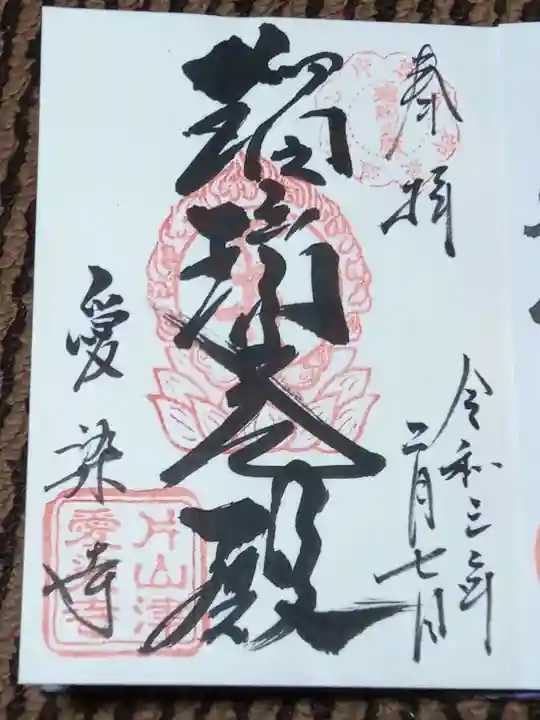 奉拝
令和三年
二月七日
瑠璃光殿
愛染寺
片山津
愛染寺